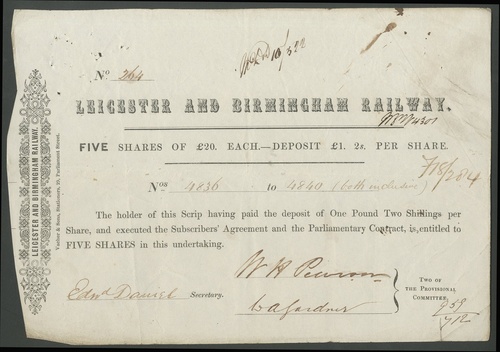 No. 264
LEICESTER AND BIRMINGHAM RAILWAY.
FIVE SHARES OF £20. EACH.—DEPOSIT £1. 2s. PER SHARE.
718/284
Nos 4836 to 4840 (both inclusive)
The holder of this Scrip having paid the deposit of One Pound Two Shillings per
Share, and executed the Subscribers' Agreement and the Parliamentary Contract, is entitled to
FIVE SHARES in this undertaking.
Edwd Daniel Secretary.
W H Pearson
TWO OF
THE PROVISIONAL
COMMITTEE.
LEICESTER AND BIRMINGHAM RAILWAY.
Parliament Street.